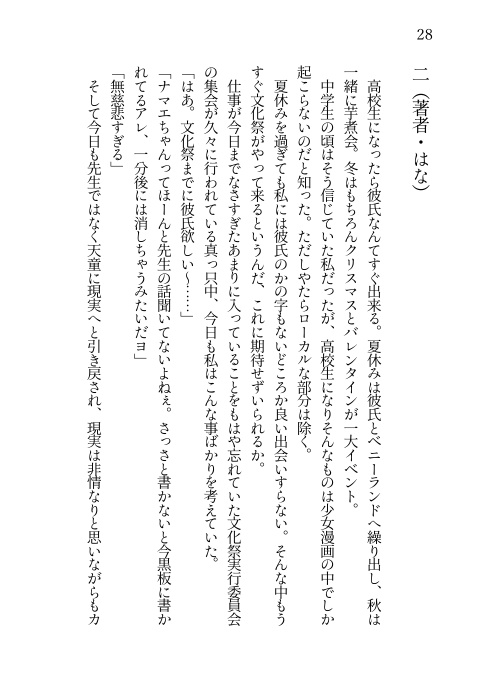 28
二（著者・はな）
高校生になったら彼氏なんてすぐ出来る。夏休みは彼氏とベニーランドへ繰り出し、秋は
一緒に芋煮会。冬はもちろんクリスマスとバレンタインが一大イベント。
中学生の頃はそう信じていた私だったが、高校生になりそんなものは少女漫画の中でしか
起こらないのだと知った。ただしやたらローカルな部分は除く。
夏休みを過ぎても私には彼氏のかの字もないどころか良い出会いすらない。そんな中もう
すぐ文化祭がやって来るというんだ、これに期待せずいられるか。
仕事が今日までなさすぎたあまりに入っていることをもはや忘れていた文化祭実行委員会
の集会が久々に行われている真っ只中、今日も私はこんな事ばかりを考えていた。
「はあ。文化祭までに彼氏欲しい～……」
「ナマエちゃんってほーんと先生の話聞いてないよねぇ。さっさと書かないと今黒板に書か
れてるアレ、一分後には消しちゃうみたいだヨ」
「無慈悲すぎる」
そして今日も先生ではなく天童に現実へと引き戻され、現実は非情なりと思いながらもカ